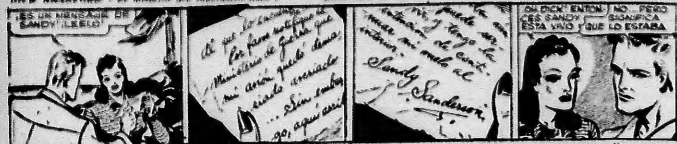 ¡ES UN MENSAJE DE
SANDY! ¡LEELO!
Al que lo encuentre:
Por favor notifique al
Ministerio de Guerra que
mi avión quedó dema-
siado averiado
... Sin embar
go, aquí
y tengo la
intención de conti-
nuar mi vuelo al
interior.
Sandy Sanderson
¡OH DICK! ENTON-
CES SANDY
ESTA VIVO
NO... PERO
SIGNIFICA
QUE LO ESTABA